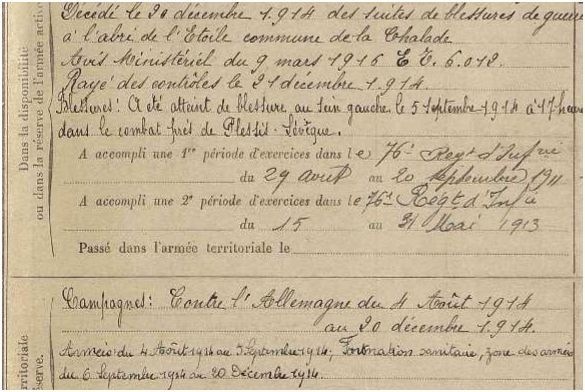 Décédé le 20 décembre 1914 des suites de blessures de guerre
à l'abri de l'Etoile commune de la Chalade
Avis Ministériel du 9 mars 1916 E.E. 6.012.
Rayé des contrôles le 21 décembre 1914.
Blessures: A été atteint de blessure au sein gauche le 5 septembre 1914 à 17 heures
dans le combat près de Plessis-Lévêque.
A accompli une 1re période d'exercices dans le 76e Regt d'Infrie
du 29 août au 20 septembre 1911
A accompli une 2e période d'exercices dans le 76e Regt d'Infie
du 15 au 31 Mai 1913
Passé dans l'armée territoriale le
Dans la disponibilité
ou dans la réserve de l'armée active
Campagnes: Contre l'Allemagne du 4 Août 1914
au 20 décembre 1914.
Armées du 4 Août 1914 au 5 Septembre 1914; Formation sanitaire, zone des armées
du 6 Septembre 1914 au 20 Décembre 1914
rritoriale
serve.